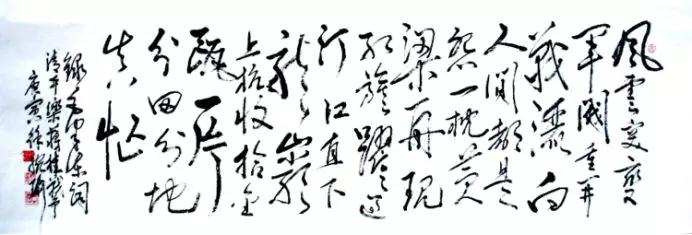 風雲突变
軍閥重开
戰灑向
人间都是
怨一枕黄
粱再現
红旗躍过
汀江直下
龍巖
上杭收拾金
甌一片
分田分地
真忙
錄毛澤东詞
清平樂蔣桂戰爭
庚寅徐